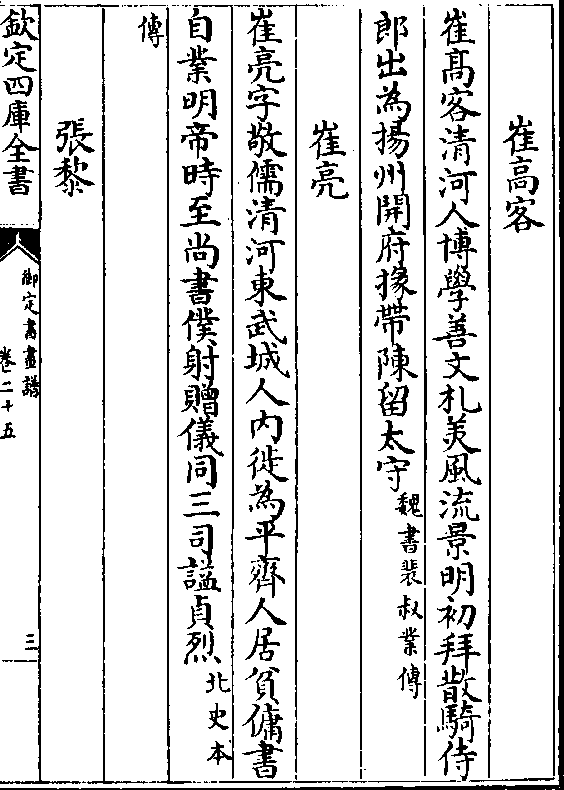 崔高客
崔髙客清河人博學善文札美風流景明初拜散騎侍
郎出為揚州開府掾帶陳留太守魏書裴叔業傳
崔亮
崔亮字敬儒清河東武城人內徙為平齊人居貧傭書
自業明帝時至尚書僕射贈儀同三司謚貞烈北史本
傳
張黎
欽定四庫全書
御定書畫譜
卷二十五
三